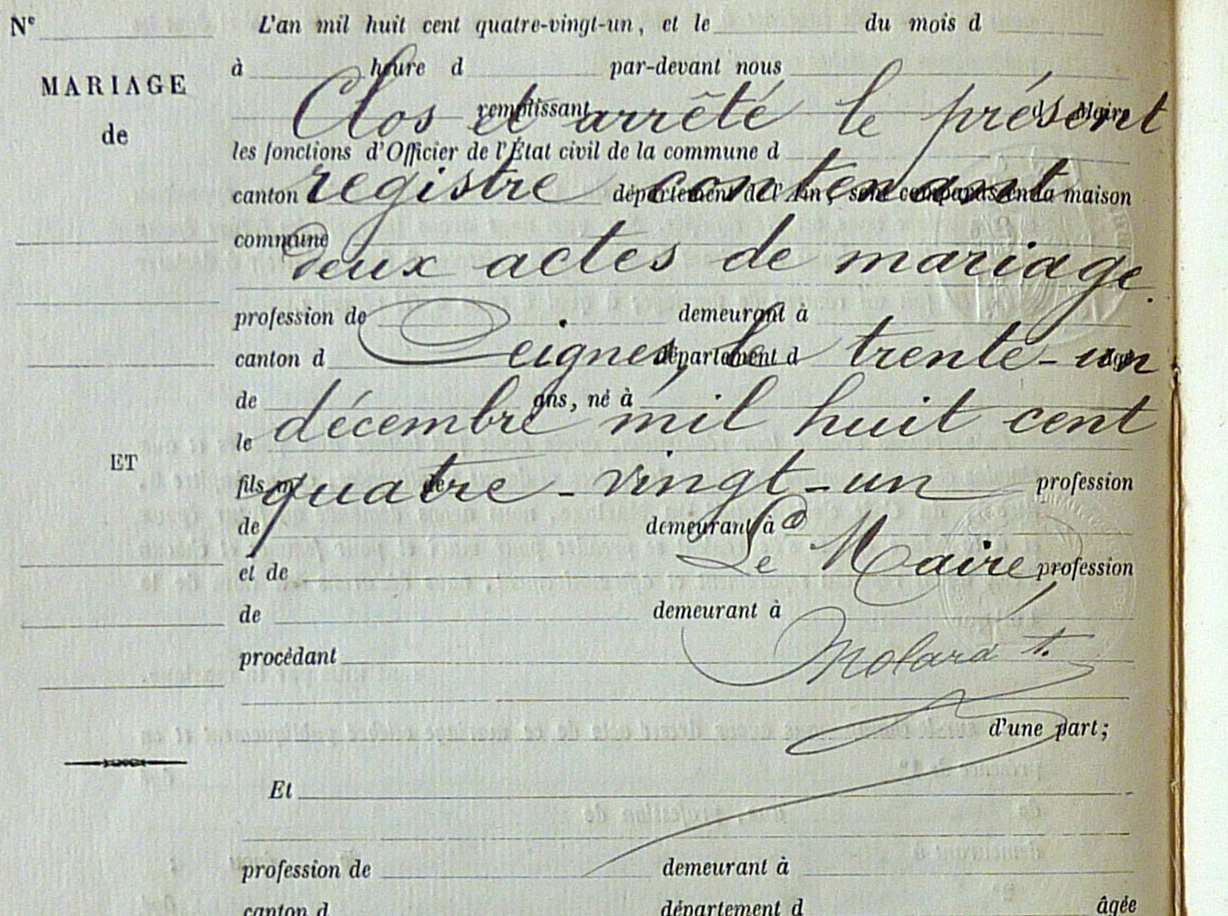 Nº L'an mil huit cent quatre-vingt-un, et le du mois d
à heure d par-devant nous
MARIAGE
de
remplissant d Maire
Clos et arrêté le présent
les fonctions d'Officier de l'État civil de la commune d
canton département de l'Ain, sont comparus en la maison
registre contenant
commune
deux actes de mariage.
profession de demeurant à
canton d département d âgé
Ceignes, le trente-un
de ans, né à
décembre mil huit cent
le
ET
fils de profession
quatre-vingt-un
de demeurant à
Le Maire,
et de profession
de demeurant à
procédant
Molard t.
d'une part;
Et
profession de demeurant à
canton d département d âgée